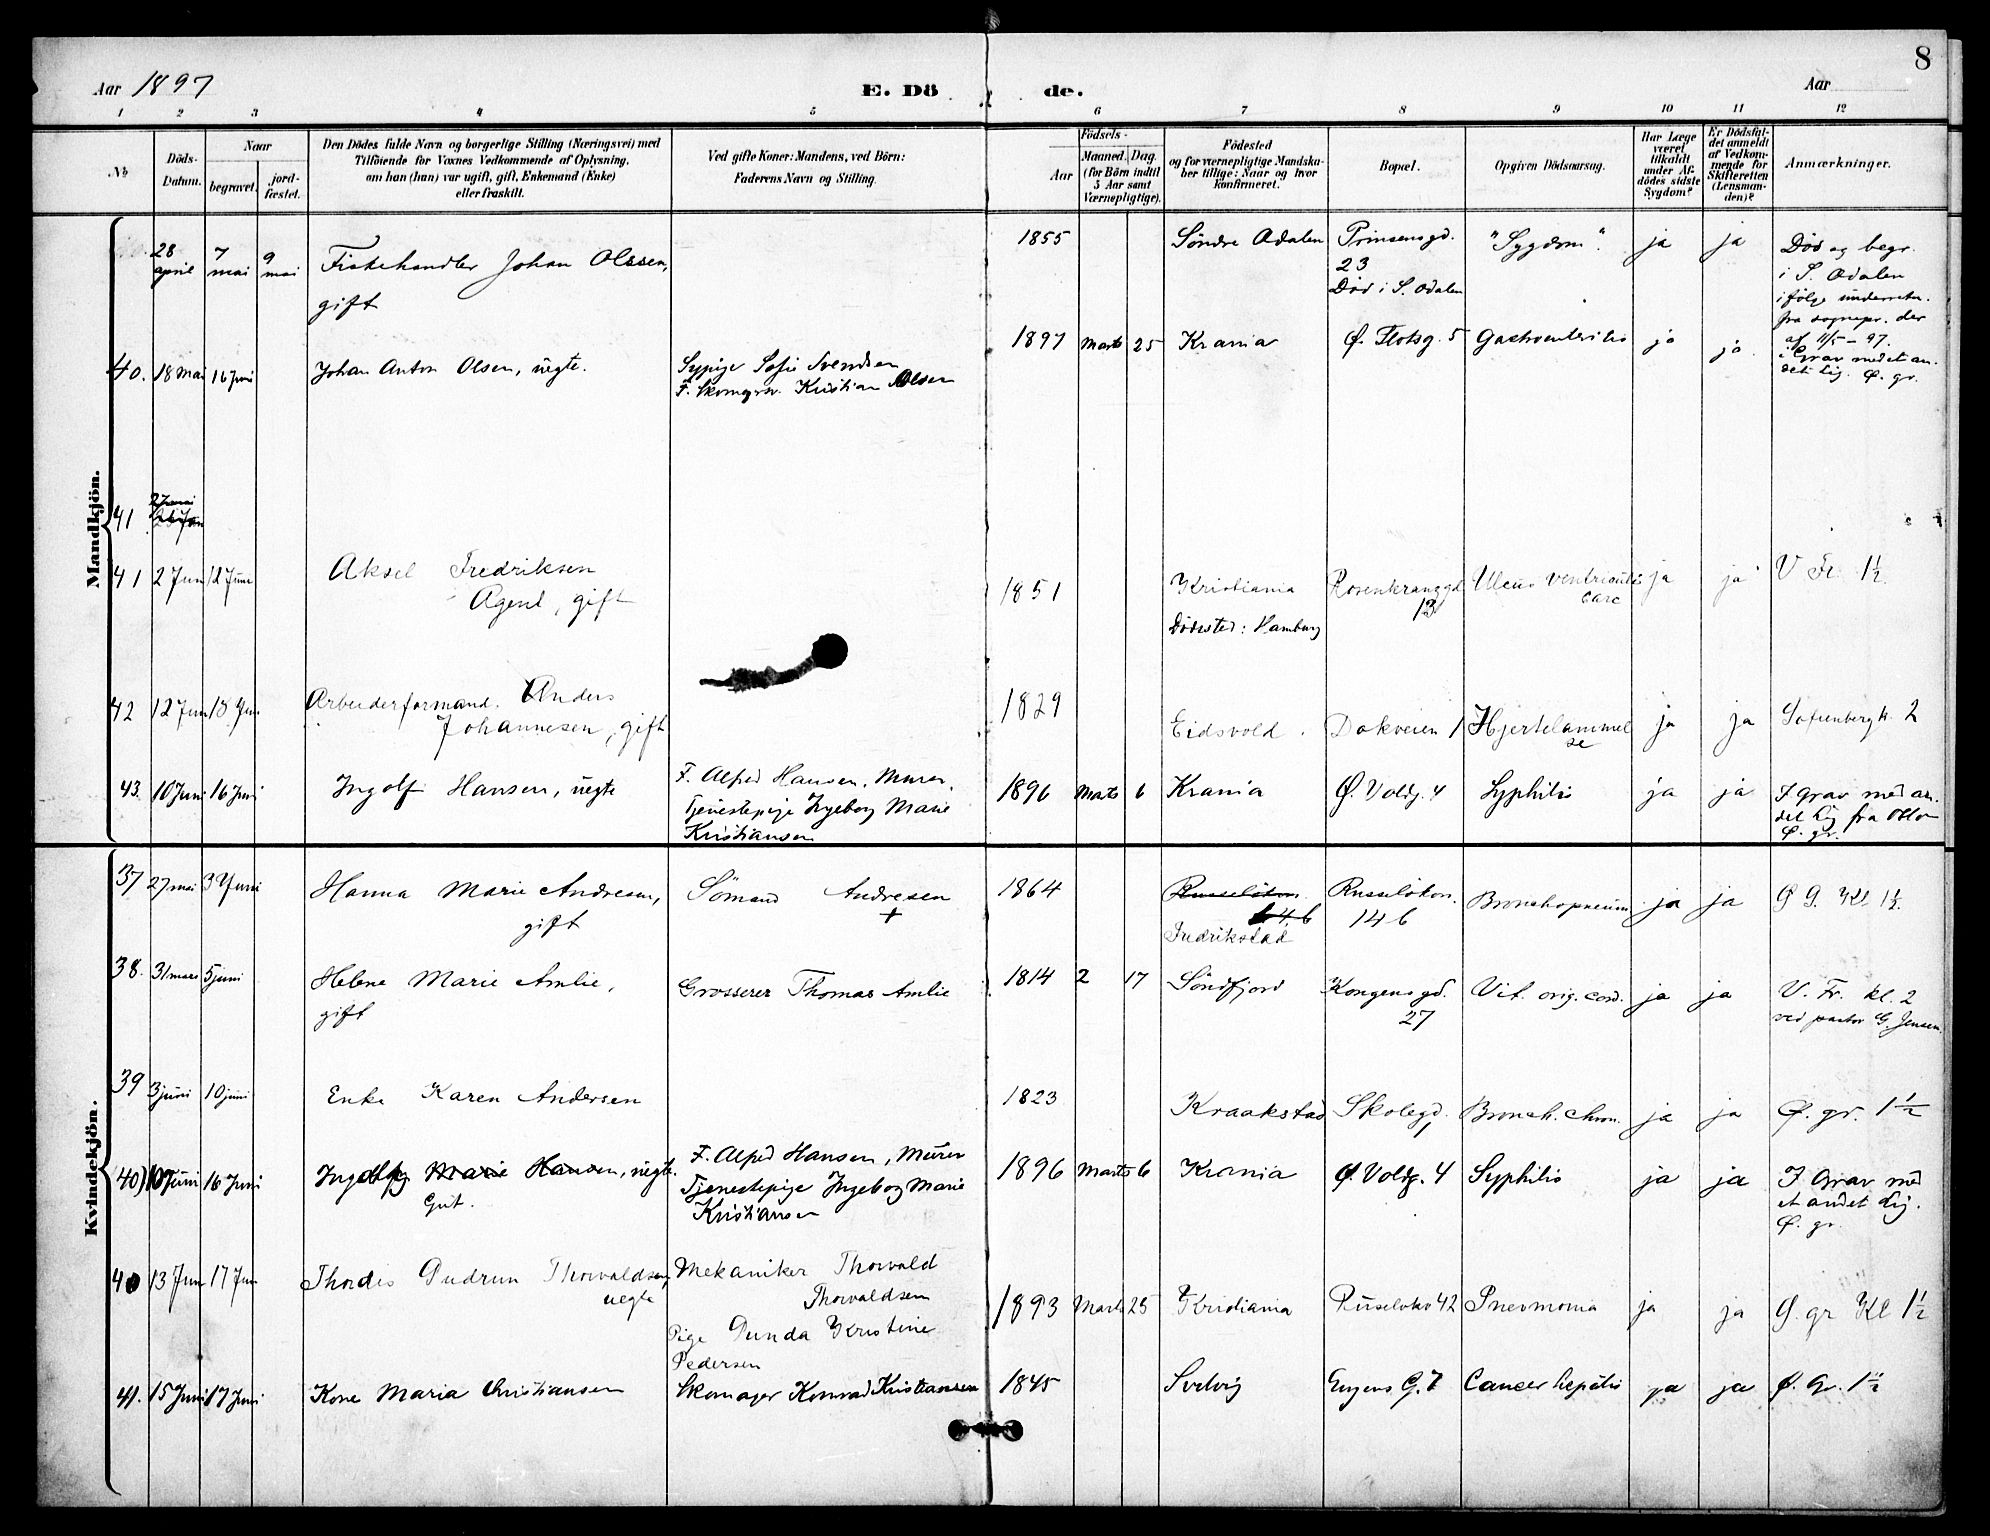 8
Aar 1897 E. Dö de. Aar
1 2 3 4 5 6 7 8 9 10 11 12
No
Döds-Datum.
Naar
begravet.
jordfæstet.
Den Dödes fulde Navn og borgerlige Stilling (Næringsvei) med
Tilföiende for Voxnes Vedkommende af Oplysning,
om han (hun) var ugift, gift, Enkemand (Enke)
eller fraskilt.
Ved gifte Koner: Mandens, ved Börn:
Faderens Navn og Stilling.
Födsels-
Aar
Maaned. Dag.
(for Börn indtil
5 Aar samt
Værnepligtige).
Födested
og for værnepligtige Mandska-
ber tillige: Naar og hvor
konfirmeret.
Bopæl.
Opgiven Dödsaarsag.
Har Læge
været
tilkaldt
under Af-
dödes sidste
Sygdom?
Er Dödsfal-
det anmeldt
af Vedkom-
mende for
Skifteretten
(Lensman-
den)?
Anmærkninger.
Mandkjön.
28 april 7 mai 9 mai Fiskehandler Johan Olssen,
gift
1855 Söndre Odalen Prinsensgd.
23
Död i S. Odalen
"Sygdom". ja ja Död og begr.
i S. Odalen
ifölge underretn.
fra sognepr. der
af 11/5 - 97.
40. 18 Mai 16 Juni Johan Anton Olsen, uegte. Sypige Sofie Svendsen
F. Skomagersv. Kristian Olsen
1897 Marts 25 Krania Ø. Slotsg. 5 Gastroenteritis ja ja. i Grav med et an-
det Lig. Ø. gr.
41 27 mai
41 2 Jun 12 Juni Aksel Fredriksen
Agent, gift
1851 Kristiania
Dödssted: Hamburg
Rosenkranzgd
13
Ulcus ventriculi
carc
ja ja V Fr. 1½
42 12 Jun 18 Jun Arbeiderformand. Anders
Johannesen, gift
1829 Eidsvold. Dokveien 1 Hjertelammel
se
ja ja Sofienberg k. 2
43. 10 Juni 16 Juni Ingolf Hansen, uegte F. Alfred Hansen, Murer,
Tjenestepige Ingeborg Marie
Kristiansen
1896 Marts 6 Krania Ø. Voldg. 4 Syphilis ja ja I grav med an-
det Lig fra Oslo
Ø. gr.
Kvindekjön.
37 27 mai 3 Juni Hanna Marie Andresen,
gift
Sömand Andresen
+
1864 Russelökvn.
14 b
Fredrikstad
Russelökvn.
14 b
Bronchopneum. ja ja Ø G. Kl 1½.
38. 31 mars 5 juni Helene Marie Amlie,
gift
Grosserer Thomas Amlie
1814 2 17 Söndfjord Kongensgd.
27
Vit. org. cord. ja ja V. Fr. kl. 2
ved pastor G. Jensen.
39 3 juni 10 juni Enke Karen Andersen
1823 Kraakstad Skolegd. 1 Bronch. chron. ja ja Ø. gr. 1½
(40) 10 Juni 16 Juni Marie Hansen, uegte.
Gut.
F. Alfred Hansen, Murer
Tjenestepige Ingeborg Marie
Kristiansen
1896 Marts 6 Krania Ø. Voldg. 4 Syphilis ja ja I Grav med
et andet Lig.
Ø. gr.
40 13 Jun 17 Jun Thordis Gudrun Thorvaldsen,
uegte
Mekaniker Thorvald
Thorvaldsen
Pige Gunda Kristine
Pedersen
1893 Marts 25 Kristiania Ruselökv 42 Pnevmonia ja ja Ø. gr Kl 1½
41. 15 Juni 17 Juni Kone Maria Christiansen Skomager Konrad Kristiansen
1845 Svelvig Eugens G. 7 Cancer hepatis ja ja Ø. Gr. 1½